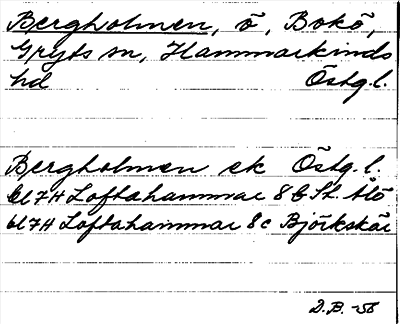 Bergholmen, ö, Bokö,
Gryts sn, Hammarkinds
hd Östg.l.
Bergholmen ek Östg.l.
bl 7H Loftahammar 8b St. Ålö
bl 7H Loftahammar 8c Björkskär
D.B. -56